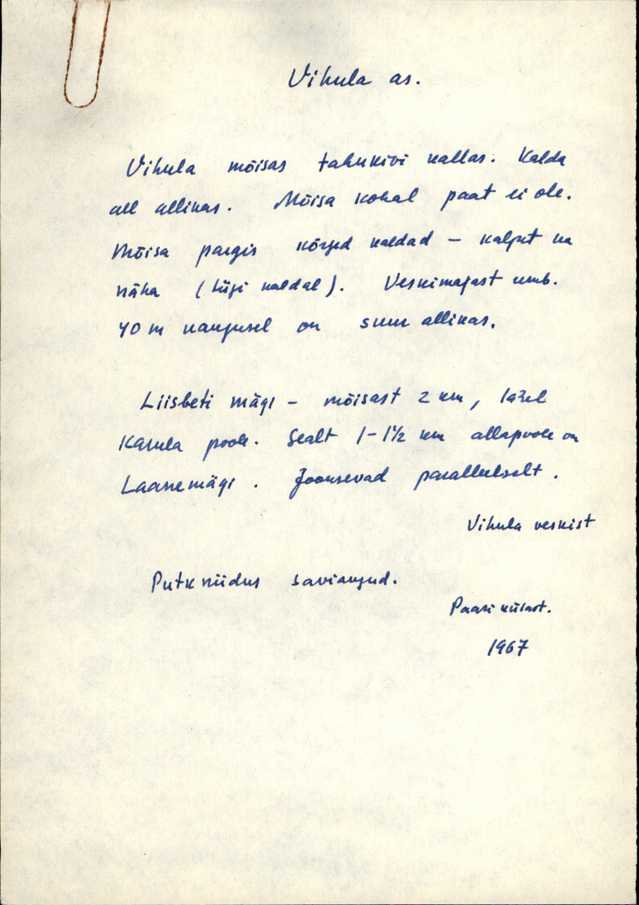 Vihula as.
Vihula mõisas tahukivi kallas. Kalda
all allikas. Mõisa kohal paat ei ole.
Mõisa pargis kõrged kaldad – kaljut ka
näha (liigi kaldal). Veskimajast umb.
40 m kaugusel on suur allikas.
Liisbeti mägi – mõisast 2 km,
Karula poole. Sealt 1–1½ km allapoole on
Laanemägi. Jooksevad paralleelselt.
Vihula veskist
Putkniidus saviaugud.
Paasi külast.
1967